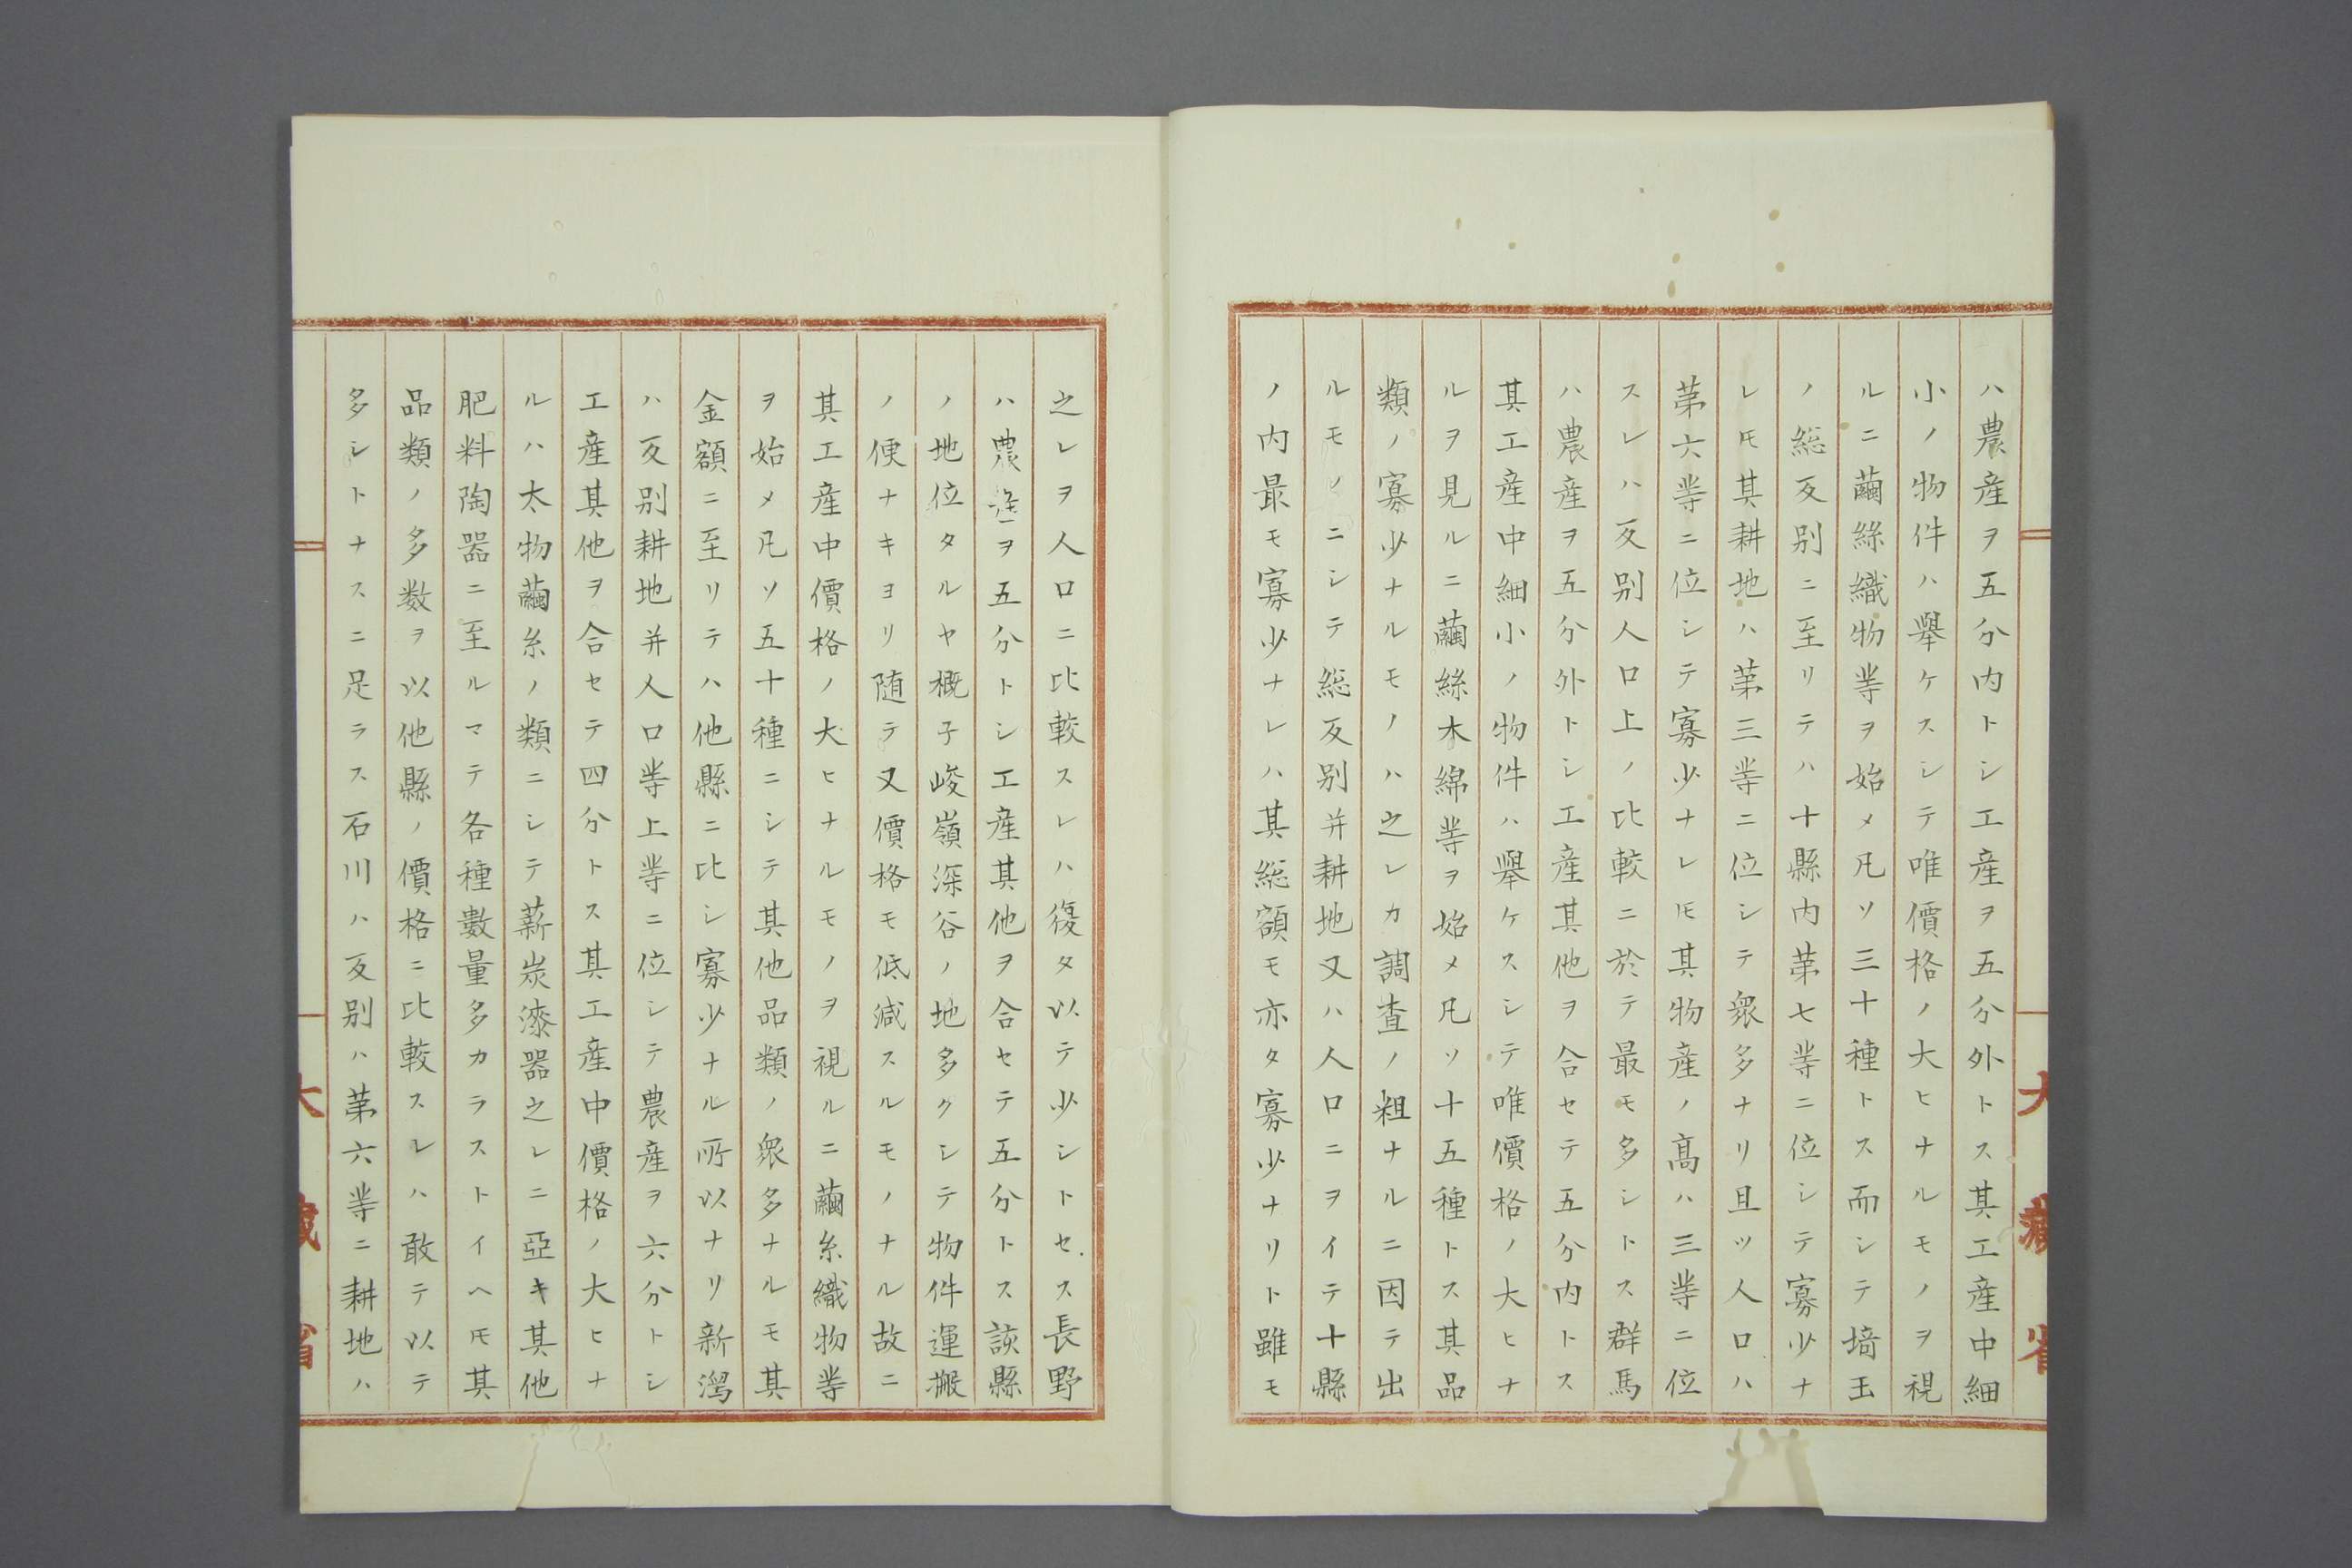 ハ農産ヲ五分内トシ工産ヲ五分外トス其工産中細
小ノ物件ハ擧ケスシテ唯價格ノ大ヒナルモノヲ視
ルニ繭絲織物等ヲ始メ凡ソ三十種トス而シテ埼玉
ノ総反别ニ至リテハ十縣内第七等ニ位シテ寡少ナ
レ𪜈其耕地ハ第三等ニ位シテ衆多ナリ且ツ人口ハ
第六等ニ位シテ寡少ナレ𪜈其物産ノ髙ハ三等ニ位
スレハ反别人口上ノ比較ニ於テ最モ多シトス群馬
ハ農産ヲ五分外トシ工産其他ヲ合セテ五分内トス
其工産中細小ノ物件ハ擧ケスシテ唯價格ノ大ヒナ
ルヲ見ルニ繭絲木綿等ヲ始メ凡ソ十五種トス其品
類ノ寡少ナルモノハ之レカ調査ノ粗ナルニ因テ出
ルモノニシテ総反别并耕地又ハ人口ニヲイテ十縣
ノ内最モ寡少ナレハ其総額モ亦タ寡少ナリト雖モ
大藏省
之レヲ人口ニ比較スレハ復タ以テ少シトセス長野
ハ農産ヲ五分トシ工産其他ヲ合セテ五分トス該縣
ノ地位タルヤ概子峻嶺深谷ノ地多クシテ物件運搬
ノ便ナキヨリ随テ又價格モ低減スルモノナル故ニ
其工産中價格ノ大ヒナルモノヲ視ルニ繭糸織物等
ヲ始メ凡ソ五十種ニシテ其他品類ノ衆多ナルモ其
金額ニ至リテハ他縣ニ比シ寡少ナル所以ナリ新潟
ハ反别耕地并人口等上等ニ位シテ農産ヲ六分トシ
工産其他ヲ合セテ四分トス其工産中價格ノ大ヒナ
ルハ太物繭糸ノ類ニシテ薪炭漆器之レニ亞キ其他
肥料陶器ニ至ルマテ各種數量多カラストイヘ𪜈其
品類ノ多数ヲ以他縣ノ價格ニ比較スレハ敢テ以テ
多シトナスニ足ラス石川ハ反别ハ第六等ニ耕地ハ
大藏省